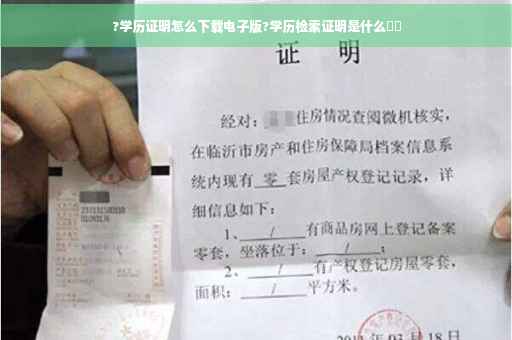 ?学历证明怎么下载电子版?学历检索证明是什么
证 明
经对：住房情况查阅微机核实，
在临沂市房产和住房保障局档案信息系
统内现有 零 套房屋产权登记记录，详
细信息如下：
1、 / 有商品房网上登记备案
零套，坐落位于： / ；
2、 / 有产权登记房屋零套，
面积： / 平方米。
03月18日